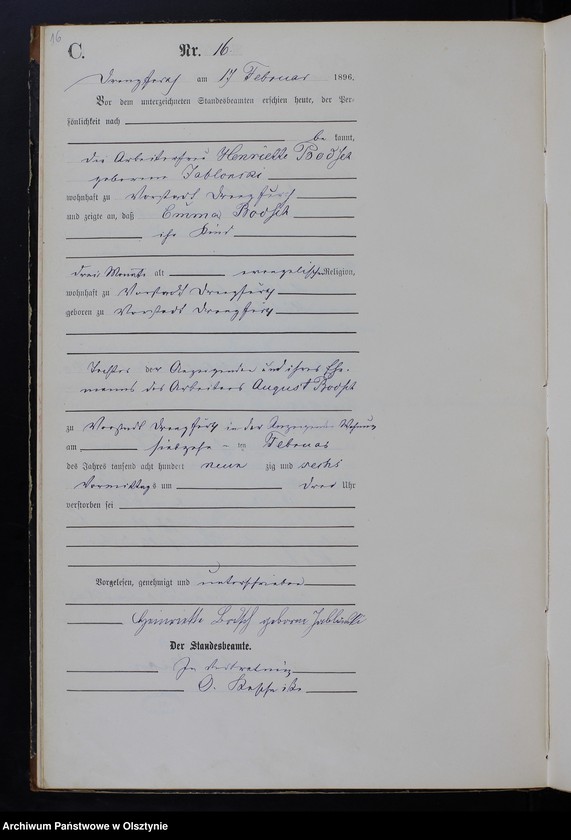 16
C.
Nr. 16.
Drengfurth am 17 Februar 1896.
Vor dem unterzeichneten Standesbeamten erschien heute, der Per-
sönlichkeit nach
be kannt,
die Arbeiterfrau Henriette
geborene Jablonski
wohnhaft zu Vorstadt Drengfurth
und zeigte an, daß Emma
ihr Kind
drei Monate alt evangelischer Religion,
wohnhaft zu Vorstadt Drengfurth
geboren zu Vorstadt Drengfurth
Tochter der Anzeigenden und ihres Ehe-
manns des Arbeiters August
zu Vorstadt Drengfurth in der Anzeigenden Wohnung
am siebzehn ten Februar
des Jahres tausend acht hundert neun zig und sechs
Vormittags um drei Uhr
verstorben sei
Vorgelesen, genehmigt und unterschrieben
Henriette geborne
Der Standesbeamte.
In Vertretung
Archiwum Państwowe w Olsztynie